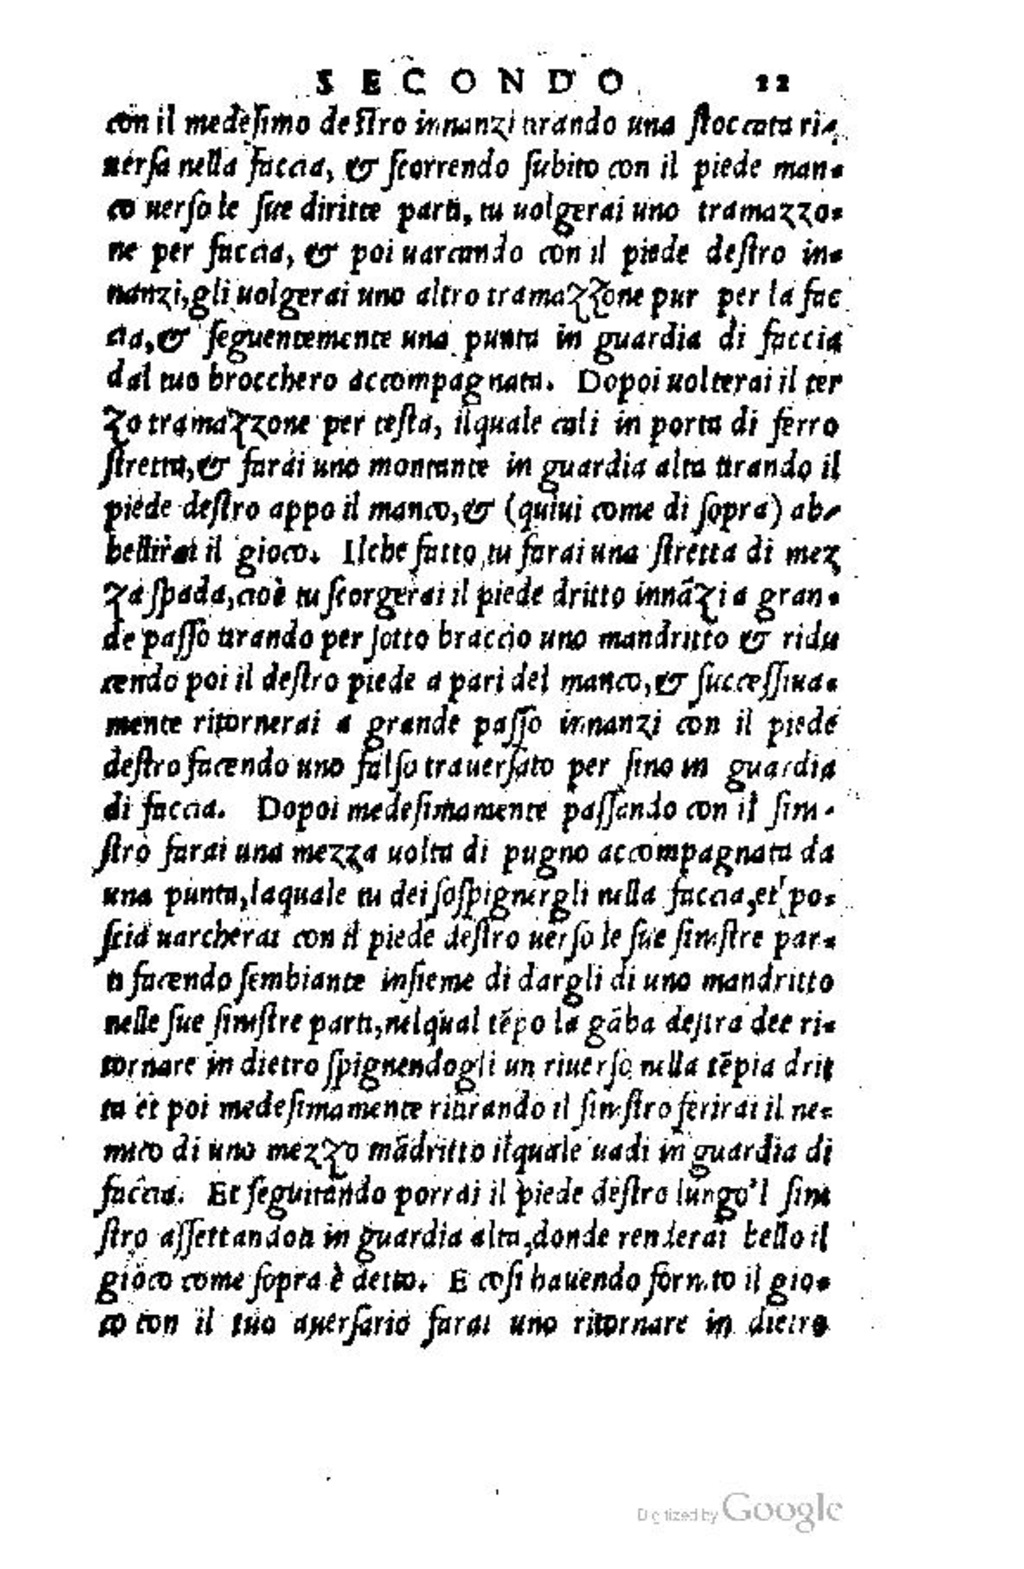 SECONDO 22
con il medesimo destro innanzi tirando una stoccata ri-
uersa nella faccia, & scorrendo subito con il piede man-
co uerso le sue diritte parti, tu uolgerai uno tramazzo-
ne per faccia, & poi uarcando con il piede destro in-
nanzi, gli uolgerai uno altro tramazzone pur per la fac
cia, & seguentemente una punta in guardia di faccia
dal tuo brocchero accompagnata. Dopoi uolterai il ter
zo tramazzone per testa, ilquale cali in porta di ferro
stretta, & farai uno montante in guardia alta tirando il
piede destro appo il manco, & (quiui come di sopra) ab-
bellirai il gioco. Ilche fatto, tu farai una stretta di mez
za spada, cioè tu scorgerai il piede dritto innãzi a gran-
de passo tirando per sotto braccio uno mandritto & ridu
cendo poi il destro piede a pari del manco, & successiua-
mente ritornerai a grande passo innanzi con il piede
destro facendo uno falso trauersato per sino in guardia
di faccia. Dopoi medesimamente passando con il sini-
stro farai una mezza uolta di pugno accompagnata da
una punta, laquale tu dei sospignergli nella faccia, et po-
scia uarcherai con il piede destro uerso le sue sinistre par-
ti facendo sembiante insieme di dargli di uno mandritto
nelle sue sinistre parti, nelqual tẽpo la gãba destra dee ri-
tornare in dietro spignendogli un riuerso nella tẽpia drit
ta et poi medesimamente ritirando il sinistro ferirai il ne-
mico di uno mezzo mãdritto ilquale uadi in guardia di
faccia. Et seguitando porrai il piede destro lungo'l sini
stro assettandoti in guardia alta, donde renderai bello il
gioco come sopra è detto. E cosi hauendo fornito il gio-
co con il tuo auersario farai uno ritornare in dietro
Digitized by Google